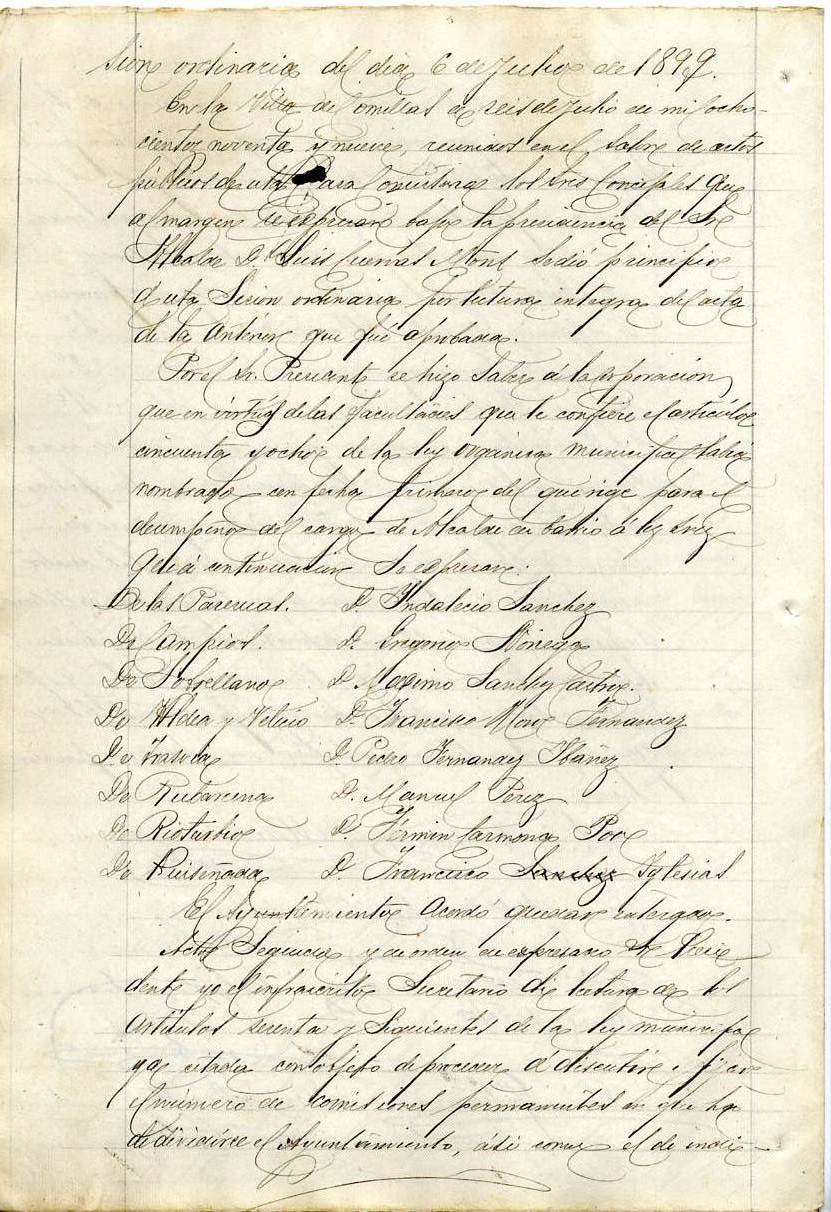 sion ordinaria del dia 6 de Julio de 1899.
En la Villa de Comillas a seis de Julio de mil ocho-
cientos noventa y nueve, reunidos en el Salon de actos
públicos de esta Casa Consistorial los Sres Concejales que
al margen se espresan bajo la presidencia del Sr
Alcalde D. Luis Cuevas Mons se dió principio
á esta Sesion ordinaria por lectura integra del acta
de la Anterior que fué aprobada.
Por el Sr. Presidente se hizo saber á la Corporacion
que en virtud de las facultades que le confiere el articulo
cincuenta y ocho de la ley organica municipal habia
nombrado con fecha primero del que rige para el
desempeño del cargo de Alcalde de barrio á los Sres
que á continuacion se espresan:
De las D. Indalecio Sanchez
De Campios. D. Gregorio Noriega
De Sobrellano D. Maximo Sanchez Castro.
De Aldea y Velecio D. Francisco Moro Fernandez
De Trasvia D. Pedro Fernandez Ibáñez
De Rubarcena D. Manuel Perez
De Rioturbio D. Fermin Carmona Poo
De Ruiseñada D. Francisco Sanchez Iglesias
El Ayuntamiento Acordó quedar enterado.
Acto Seguido y de orden de espresado Sr Presi
dente yo el infrascrito Secretario di lectura de los
Articulos sesenta y siguientes de la ley municipal
ya citada con objeto de proceder á discutir y fijar
el número de comisiones permanentes en que ha
de dividirse el Ayuntamiento, asi como el de indi-